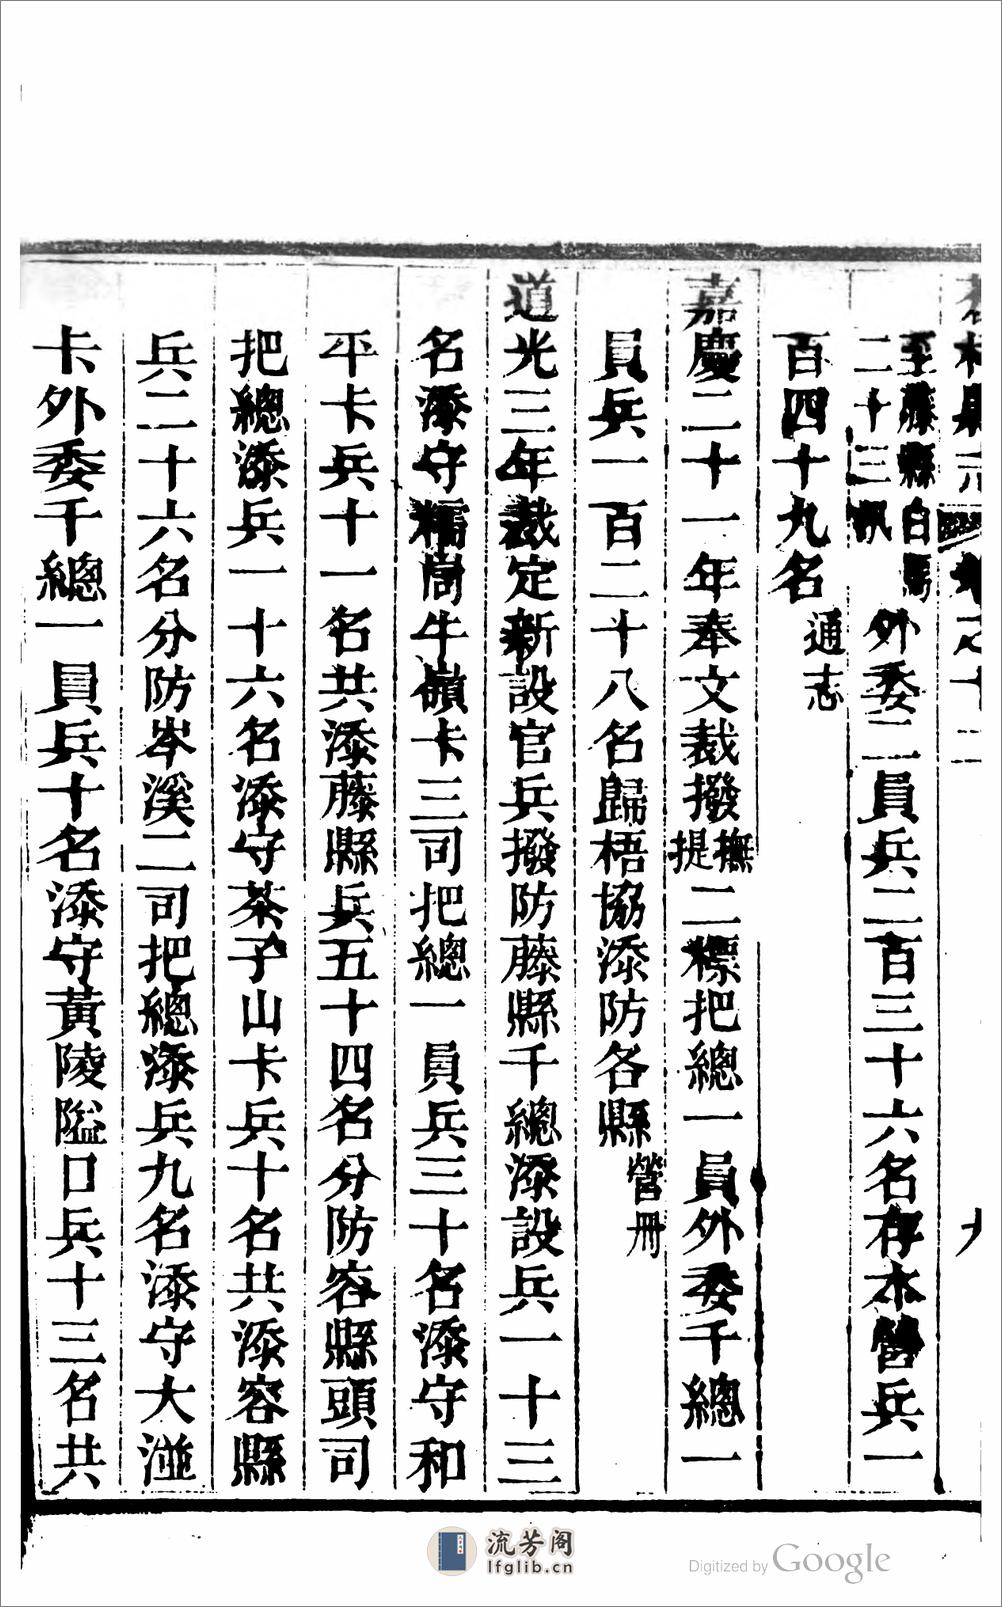 至藤縣白馬
二十三汛
外委二員兵二百三十六名存本營兵一
百四十九名通志
嘉慶二十一年奉文裁撥撫提二標把總一員外委千總一
員兵一百二十八名歸梧協添防各縣營冊
道光三年裁定新設官兵撥防藤縣千總添設兵一十三
名添守糯崗牛嶺卡三司把總一員兵三十名添守和
平卡兵十一名共添藤縣兵五十四名分防容縣頭司
把總添兵一十六名添守茶子山卡兵十名共添容縣
兵二十六名分防岑溪二司把總添兵九名添守大湴
卡外委千總一員兵十名添守黃陵隘口兵十三名共
流芳阁
lfglib.cn
Digitized by Google